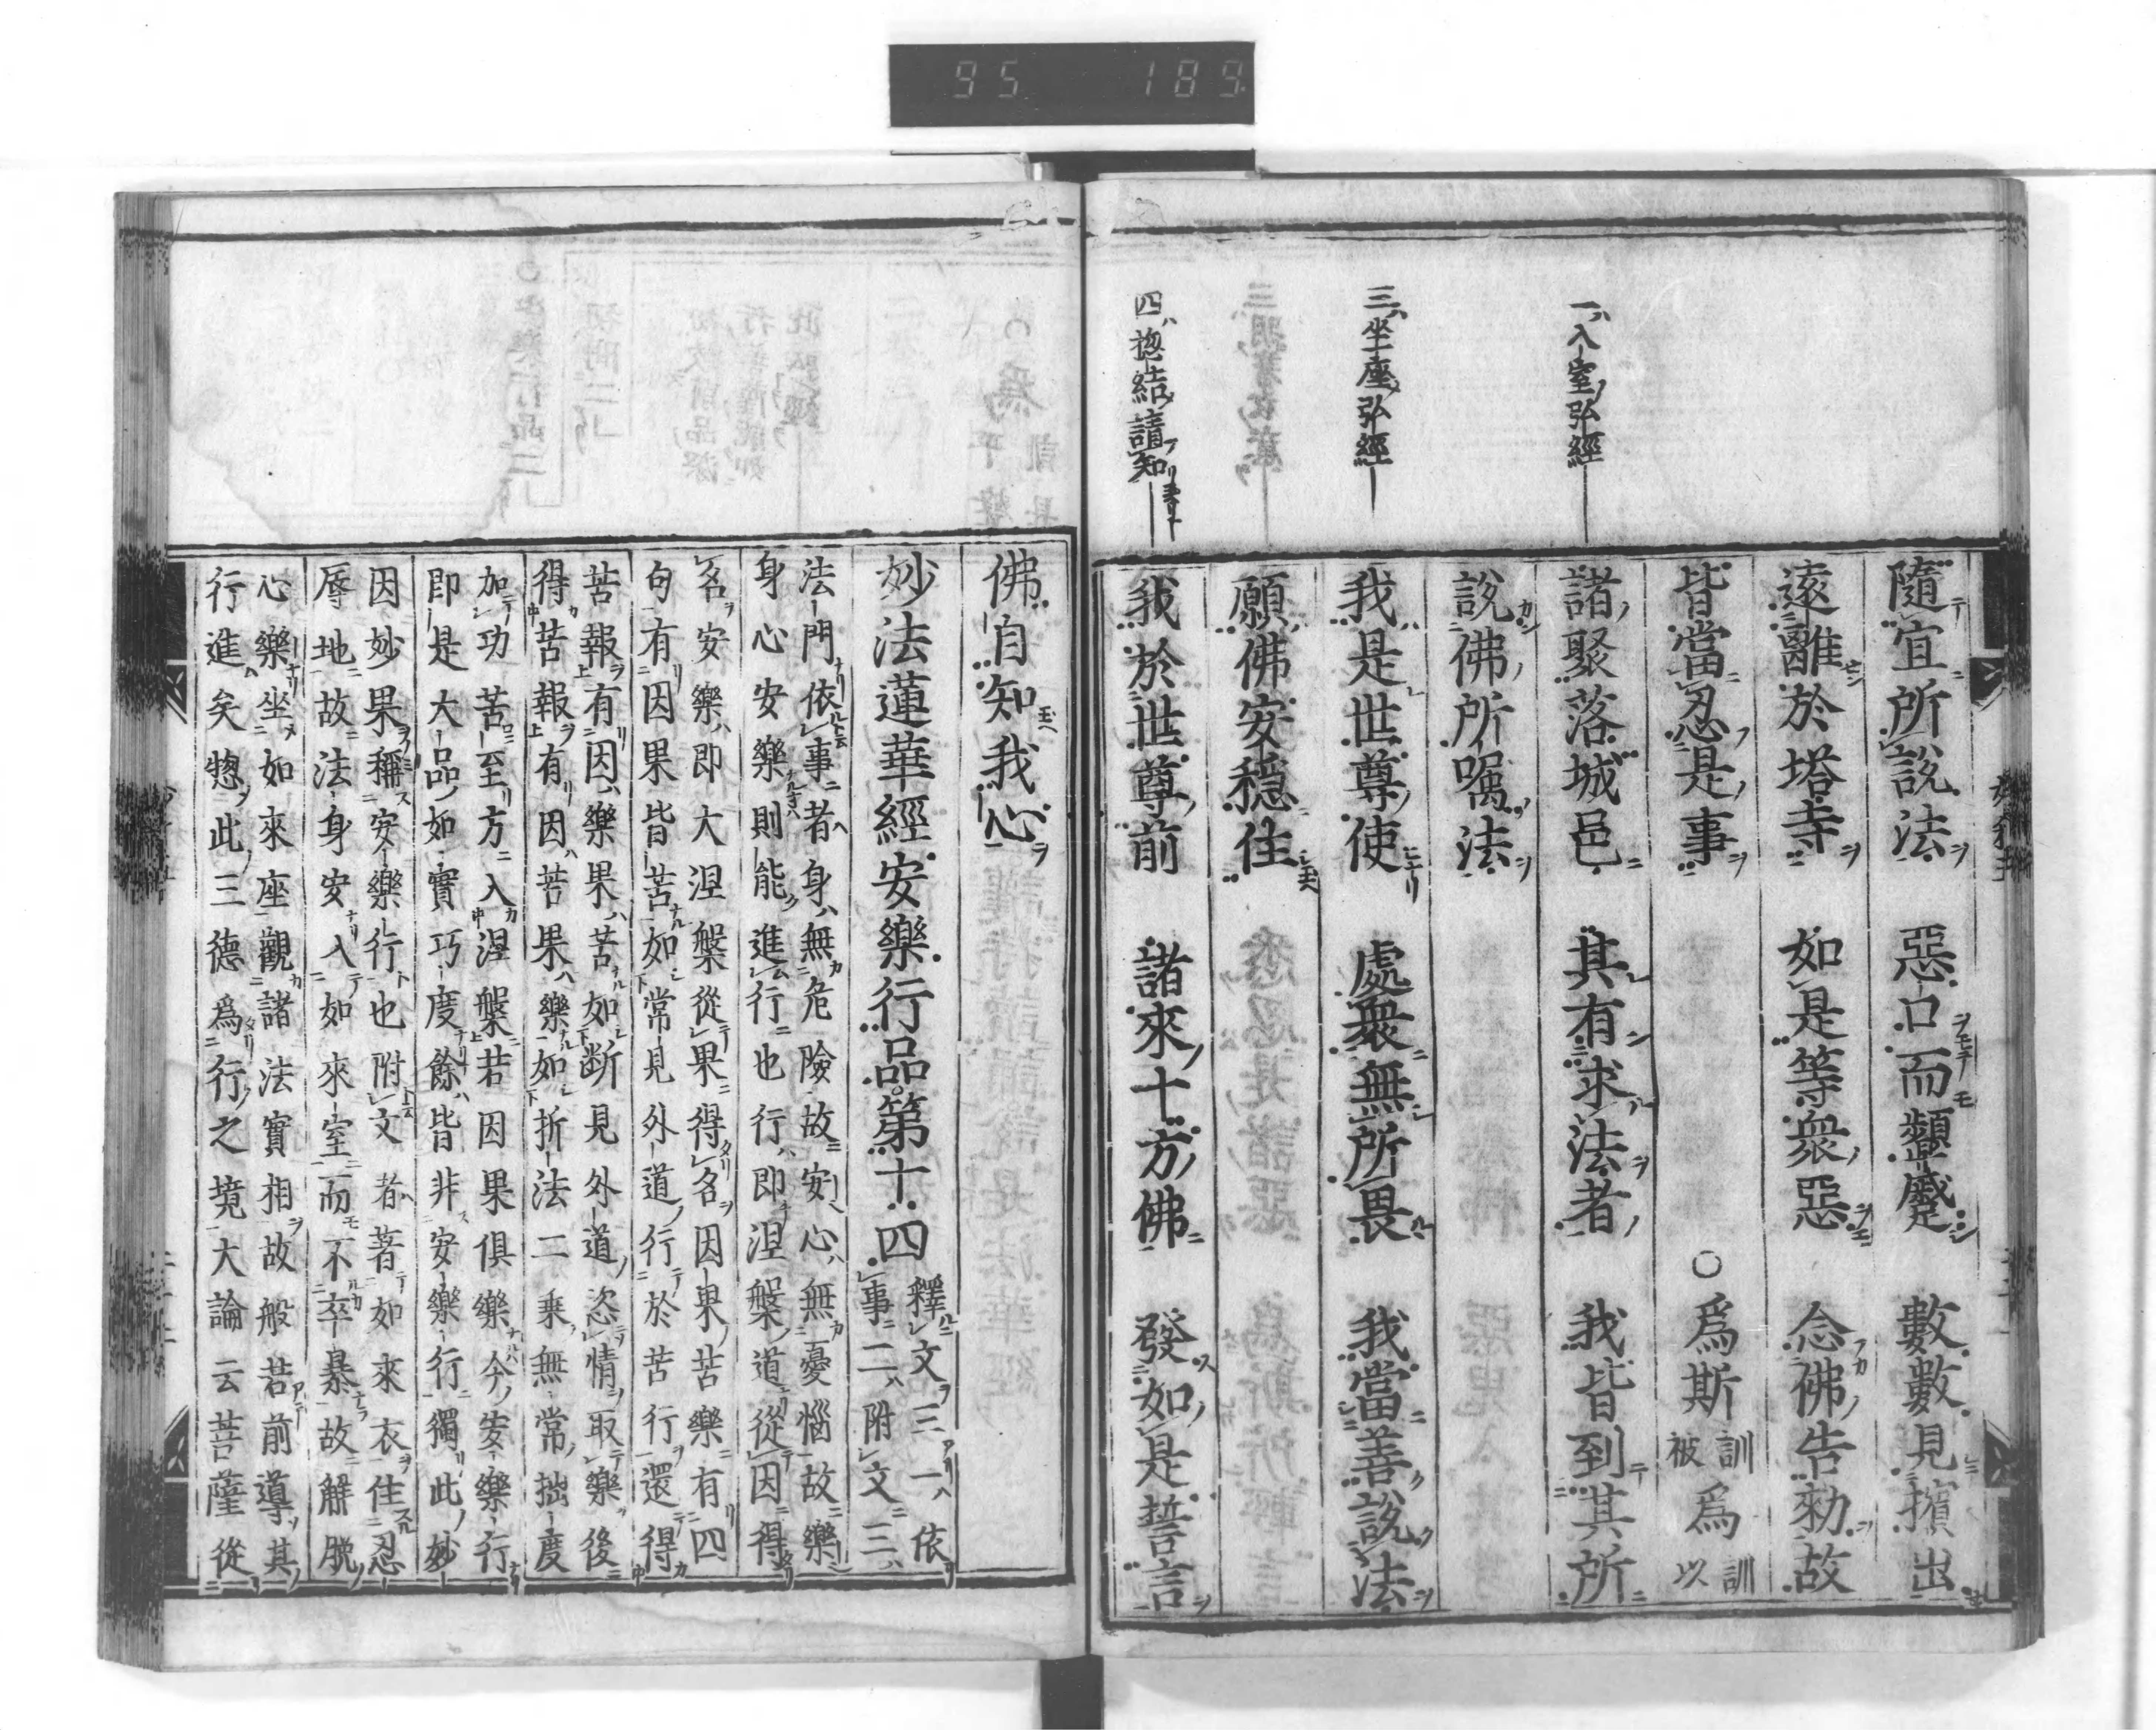 95 189
一入室弘經
三坐座弘經
四揔結請知
隨宜所説法 惡口而顰蹙 數數見擯出
遠離於塔寺 如是等衆惡 念佛告勑故
皆當忍是事 ○爲斯訓被爲訓以
諸聚落城邑 其有求法者 我皆到其所
説佛所嘱法
我是世尊使 處衆無所畏 我當善説法
願佛安穏住
我於世尊前 諸來十方佛 發如是誓言
佛自知我心
妙法蓮華經安樂行品第十四
釋文三一依
事二附文三
法門依事者身無危險故安心無憂惱故樂
身心安樂則能進行也行即涅槃道從因得
名安樂即大涅槃從果得名因果苦樂有四
句有因果皆苦如常見外道行於苦行還得
苦報有因樂果苦如断見外道恣情取樂後
得苦報有因苦果樂如折法二乘無常拙度
加功苦至方入涅槃若因果俱樂今安樂行
即是大品如實巧度餘皆非安樂行獨此妙
因妙果稱安樂行也附文者著如來衣住忍
辱地故法身安入如來室而不卒暴故解脱
心樂坐如來座觀諸法實相故般若前導其
行進矣惣此三德爲行之境大論云菩薩從